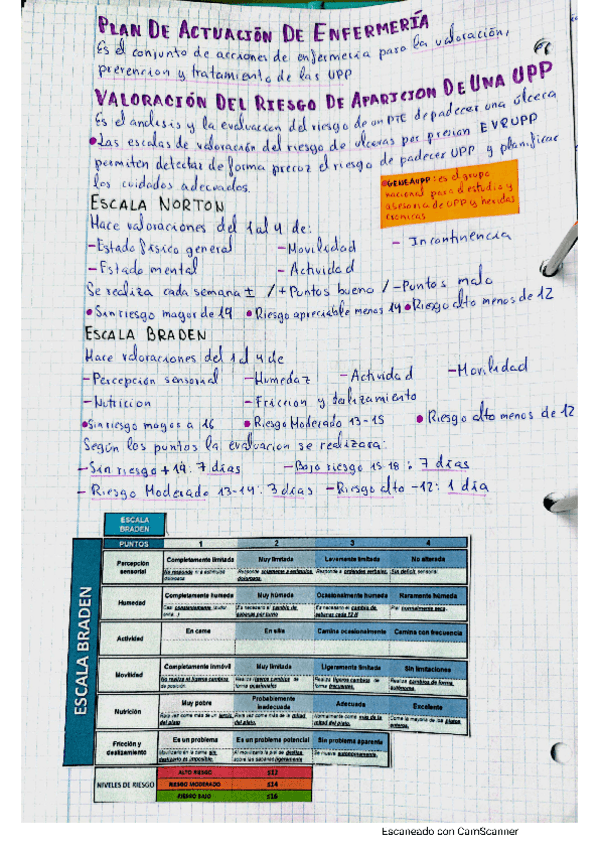 PLAN DE ACTUACIÓN DE ENFERMERÍA
Es el conjunto de acciones de enfermeria para la valoración,
prevencion y tratamiento de las UPP
VALORACIÓN DEL RIESGO DE APARICION DE UNA UPP
Es el analisis y la evaluacion del riesgo de un PTE de padecer una ulcera
•Las escalas de valoración del riesgo de ulceras por presion EVRUPP
permiten detectar de forma precoz el riesgo de padecer UPP y planificar
los cuidados adecuados.
•GENEAUPP: es el grupo
nacional para el estudio y
asesoria de UPP y heridas
cronicas
ESCALA NORTON
Hace valoraciones del 1 al 4 de:
-Estado fisico general -Movilidad - Incontinencia
-Estado mental - Actividad
Se realiza cada semana ± / + Puntos bueno / -Puntos malo
•Sin riesgo mayor de 19 •Riesgo apreciable menos 14 •Riesgo alto menos de 12
ESCALA BRADEN
Hace valoraciones del 1 al 4 de
-Percepción sensorial -Humedaz -Actividad -Movilidad
-Nutricion -Friccion y
•Sin riesgo mayor a 16 •Riesgo Moderado 13-15 •Riesgo alto menos de 12
Según los puntos la evaluacion se realizara:
-Sin riesgo +19: 7 días -Bajo riesgo 15-18: 7 días
- Riesgo Moderado 13-14: 3 días -Riesgo alto -12: 1 día
ESCALA
BRADEN
ESCALA BRADEN
PUNTOS 1 2 3 4
Percepción sensorial Completamente limitada Muy limitada Levemente limitada No alterada
Humedad Completamente humeda Muy húmeda Ocasionalmente humeda Raramente húmeda
Actividad En cama En silla Camina ocasionalmente Camina con frecuencia
Movilidad Completamente inmóvil Muy limitada Ligeramente limitada Sin limitaciones
Nutrición Muy pobre Probablemente inadecuada Adecuada Excelente
Fricción y deslizamiento Es un problema Es un problema potencial Sin problema aparente
NIVELES DE RIESGO
ALTO RIESGO ≤12
RIESGO MODERADO ≤14
RIESGO BAJO ≤16
Escaneado con CamScanner